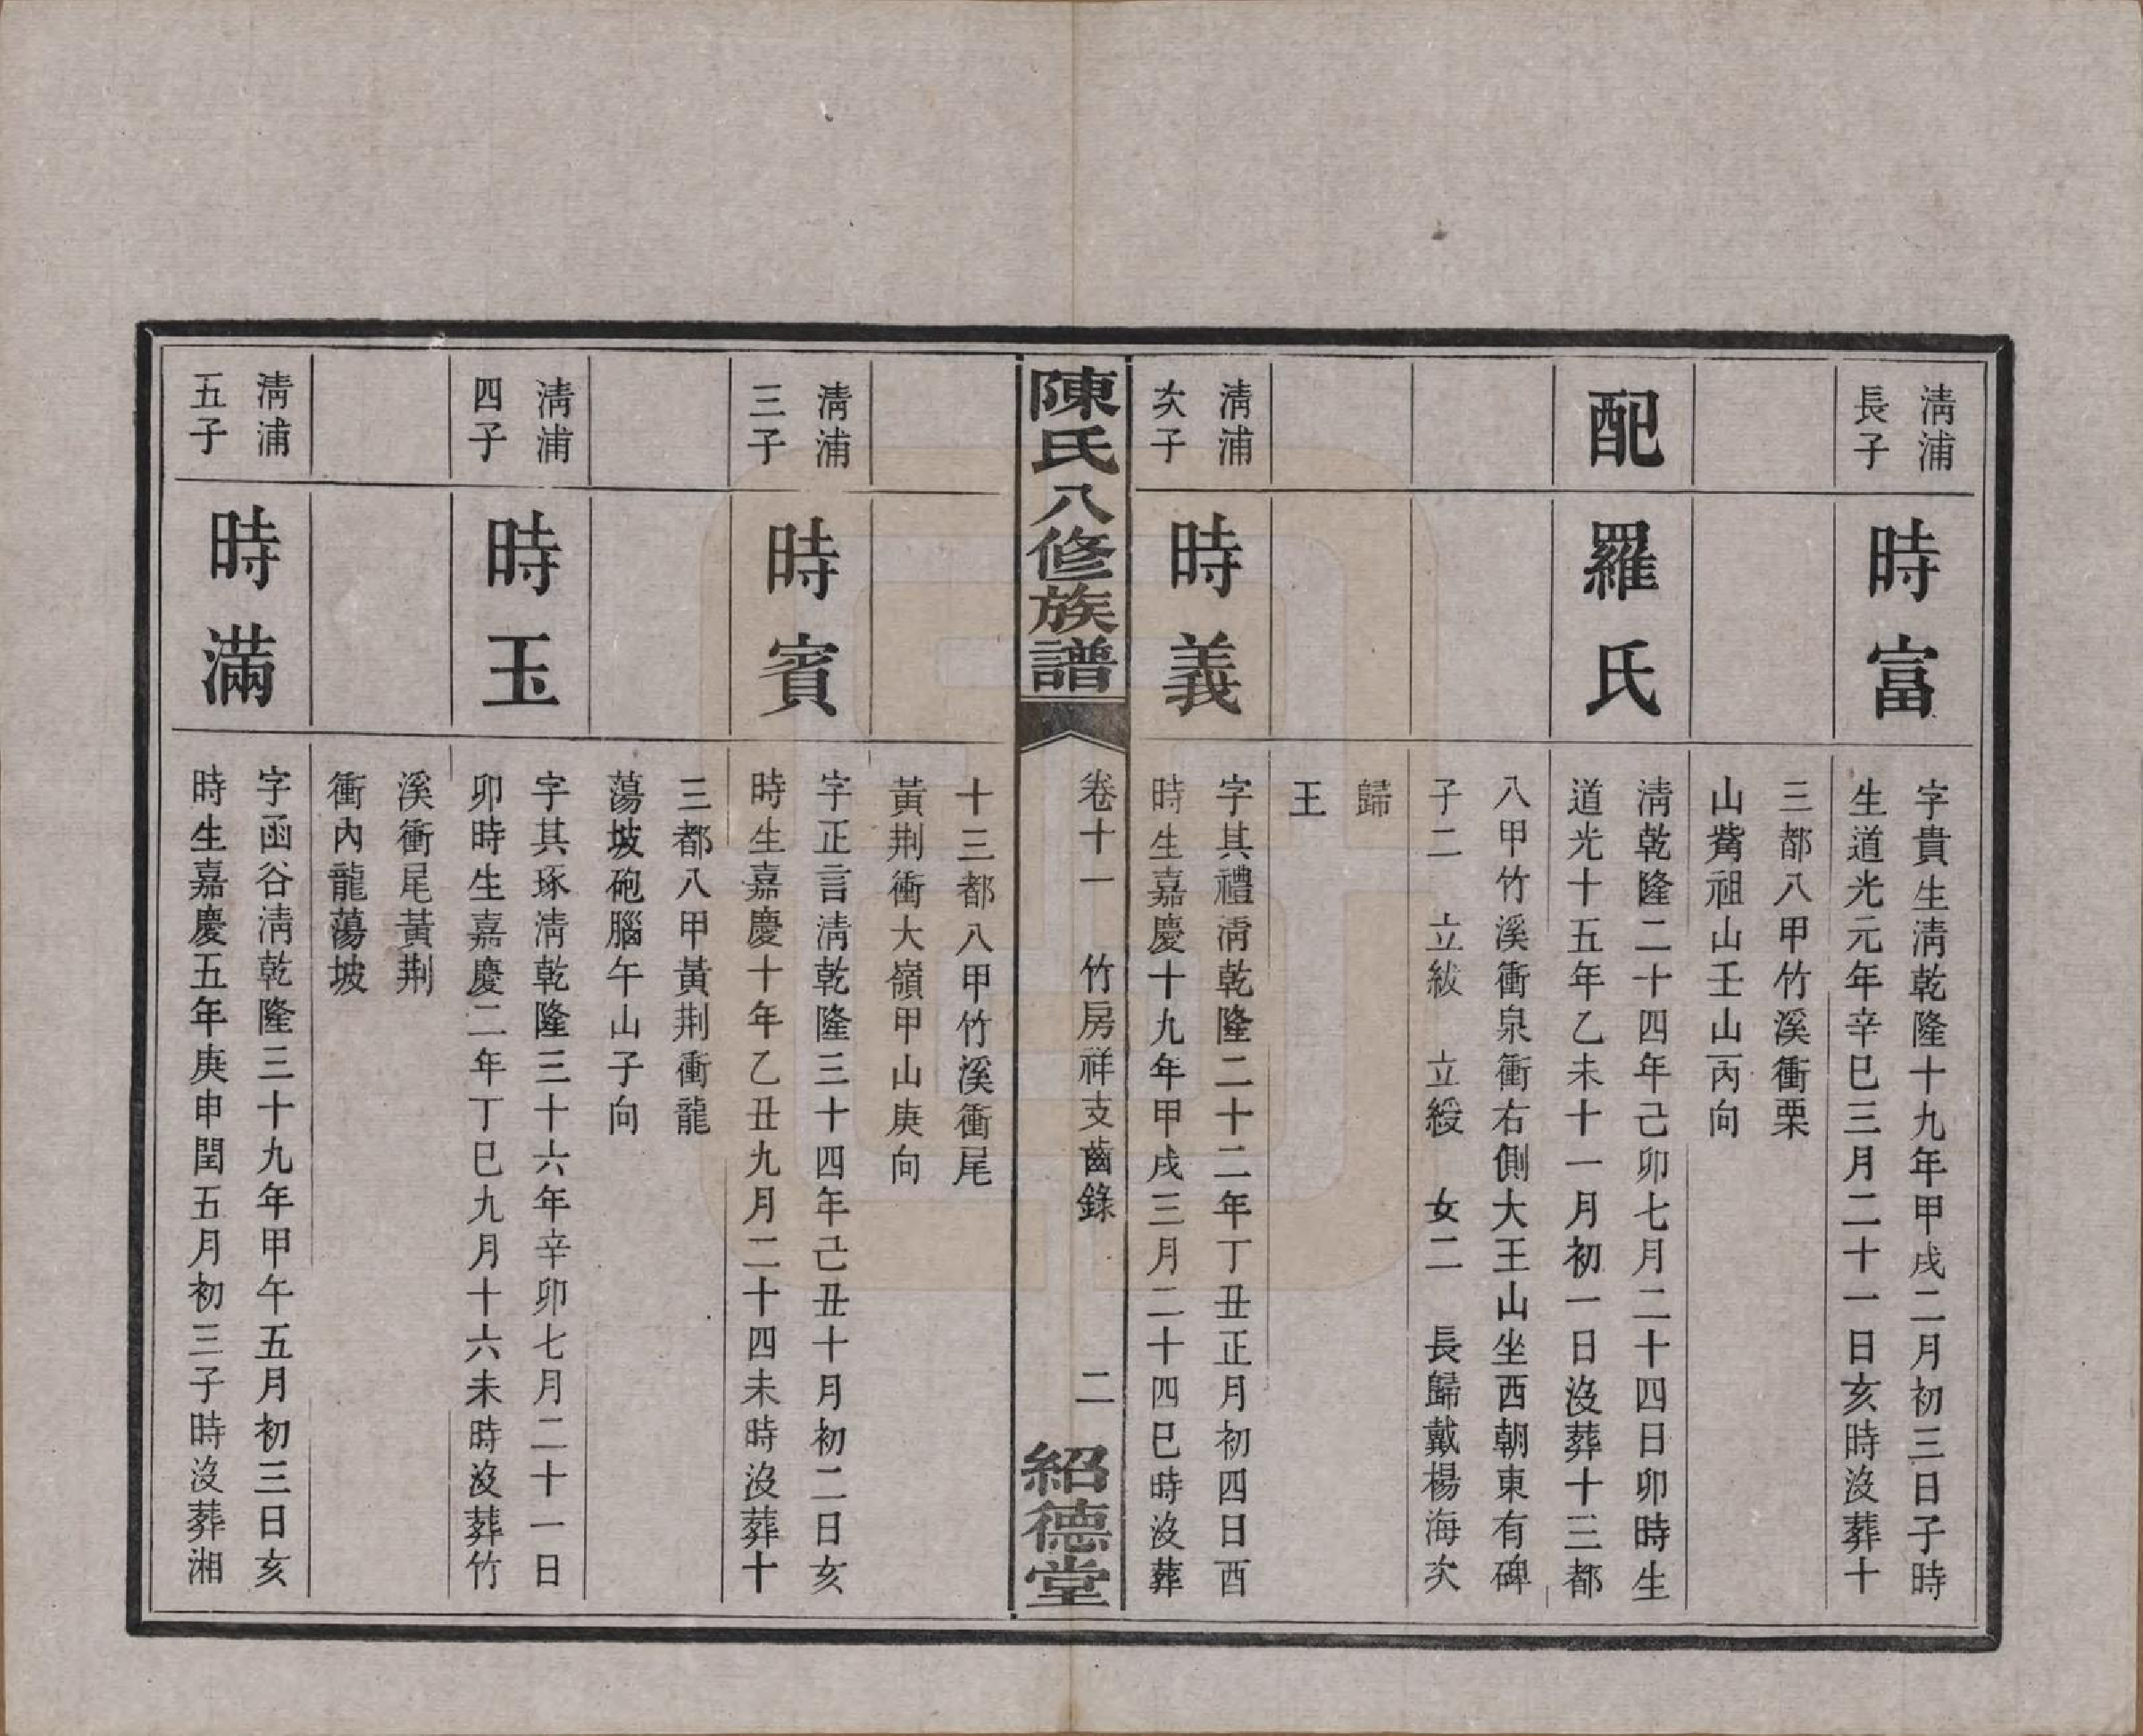 清浦
長子
時富
字貴生清乾隆十九年甲戌二月初三日子時
生道光元年辛巳三月二十一日亥時沒葬十
三都八甲竹溪衝栗
山觜祖山壬山丙向
配
羅氏
清乾隆二十四年己卯七月二十四日卯時生
道光十五年乙未十一月初一日沒葬十三都
八甲竹溪衝泉衝右側大王山坐西朝東有碑
子二　立紱　立綬　女二　長歸戴楊海次
歸
王
清浦
次子
時義
字其禮清乾隆二十二年丁丑正月初四日酉
時生嘉慶十九年甲戌三月二十四巳時沒葬
陳氏八修族譜
卷十一　竹房祥支齒錄　二
紹德堂
十三都八甲竹溪衝尾
黃荆衝大嶺甲山庚向
清浦
三子
時賓
字正言清乾隆三十四年己丑十月初二日亥
時生嘉慶十年乙丑九月二十四未時沒葬十
三都八甲黃荆衝龍
蕩坡砲腦午山子向
清浦
四子
時玉
字其琢清乾隆三十六年辛卯七月二十一日
卯時生嘉慶二年丁巳九月十六未時沒葬竹
溪衝尾黃荆
衝內龍蕩坡
清浦
五子
時滿
字函谷清乾隆三十九年甲午五月初三日亥
時生嘉慶五年庚申閏五月初三子時沒葬湘